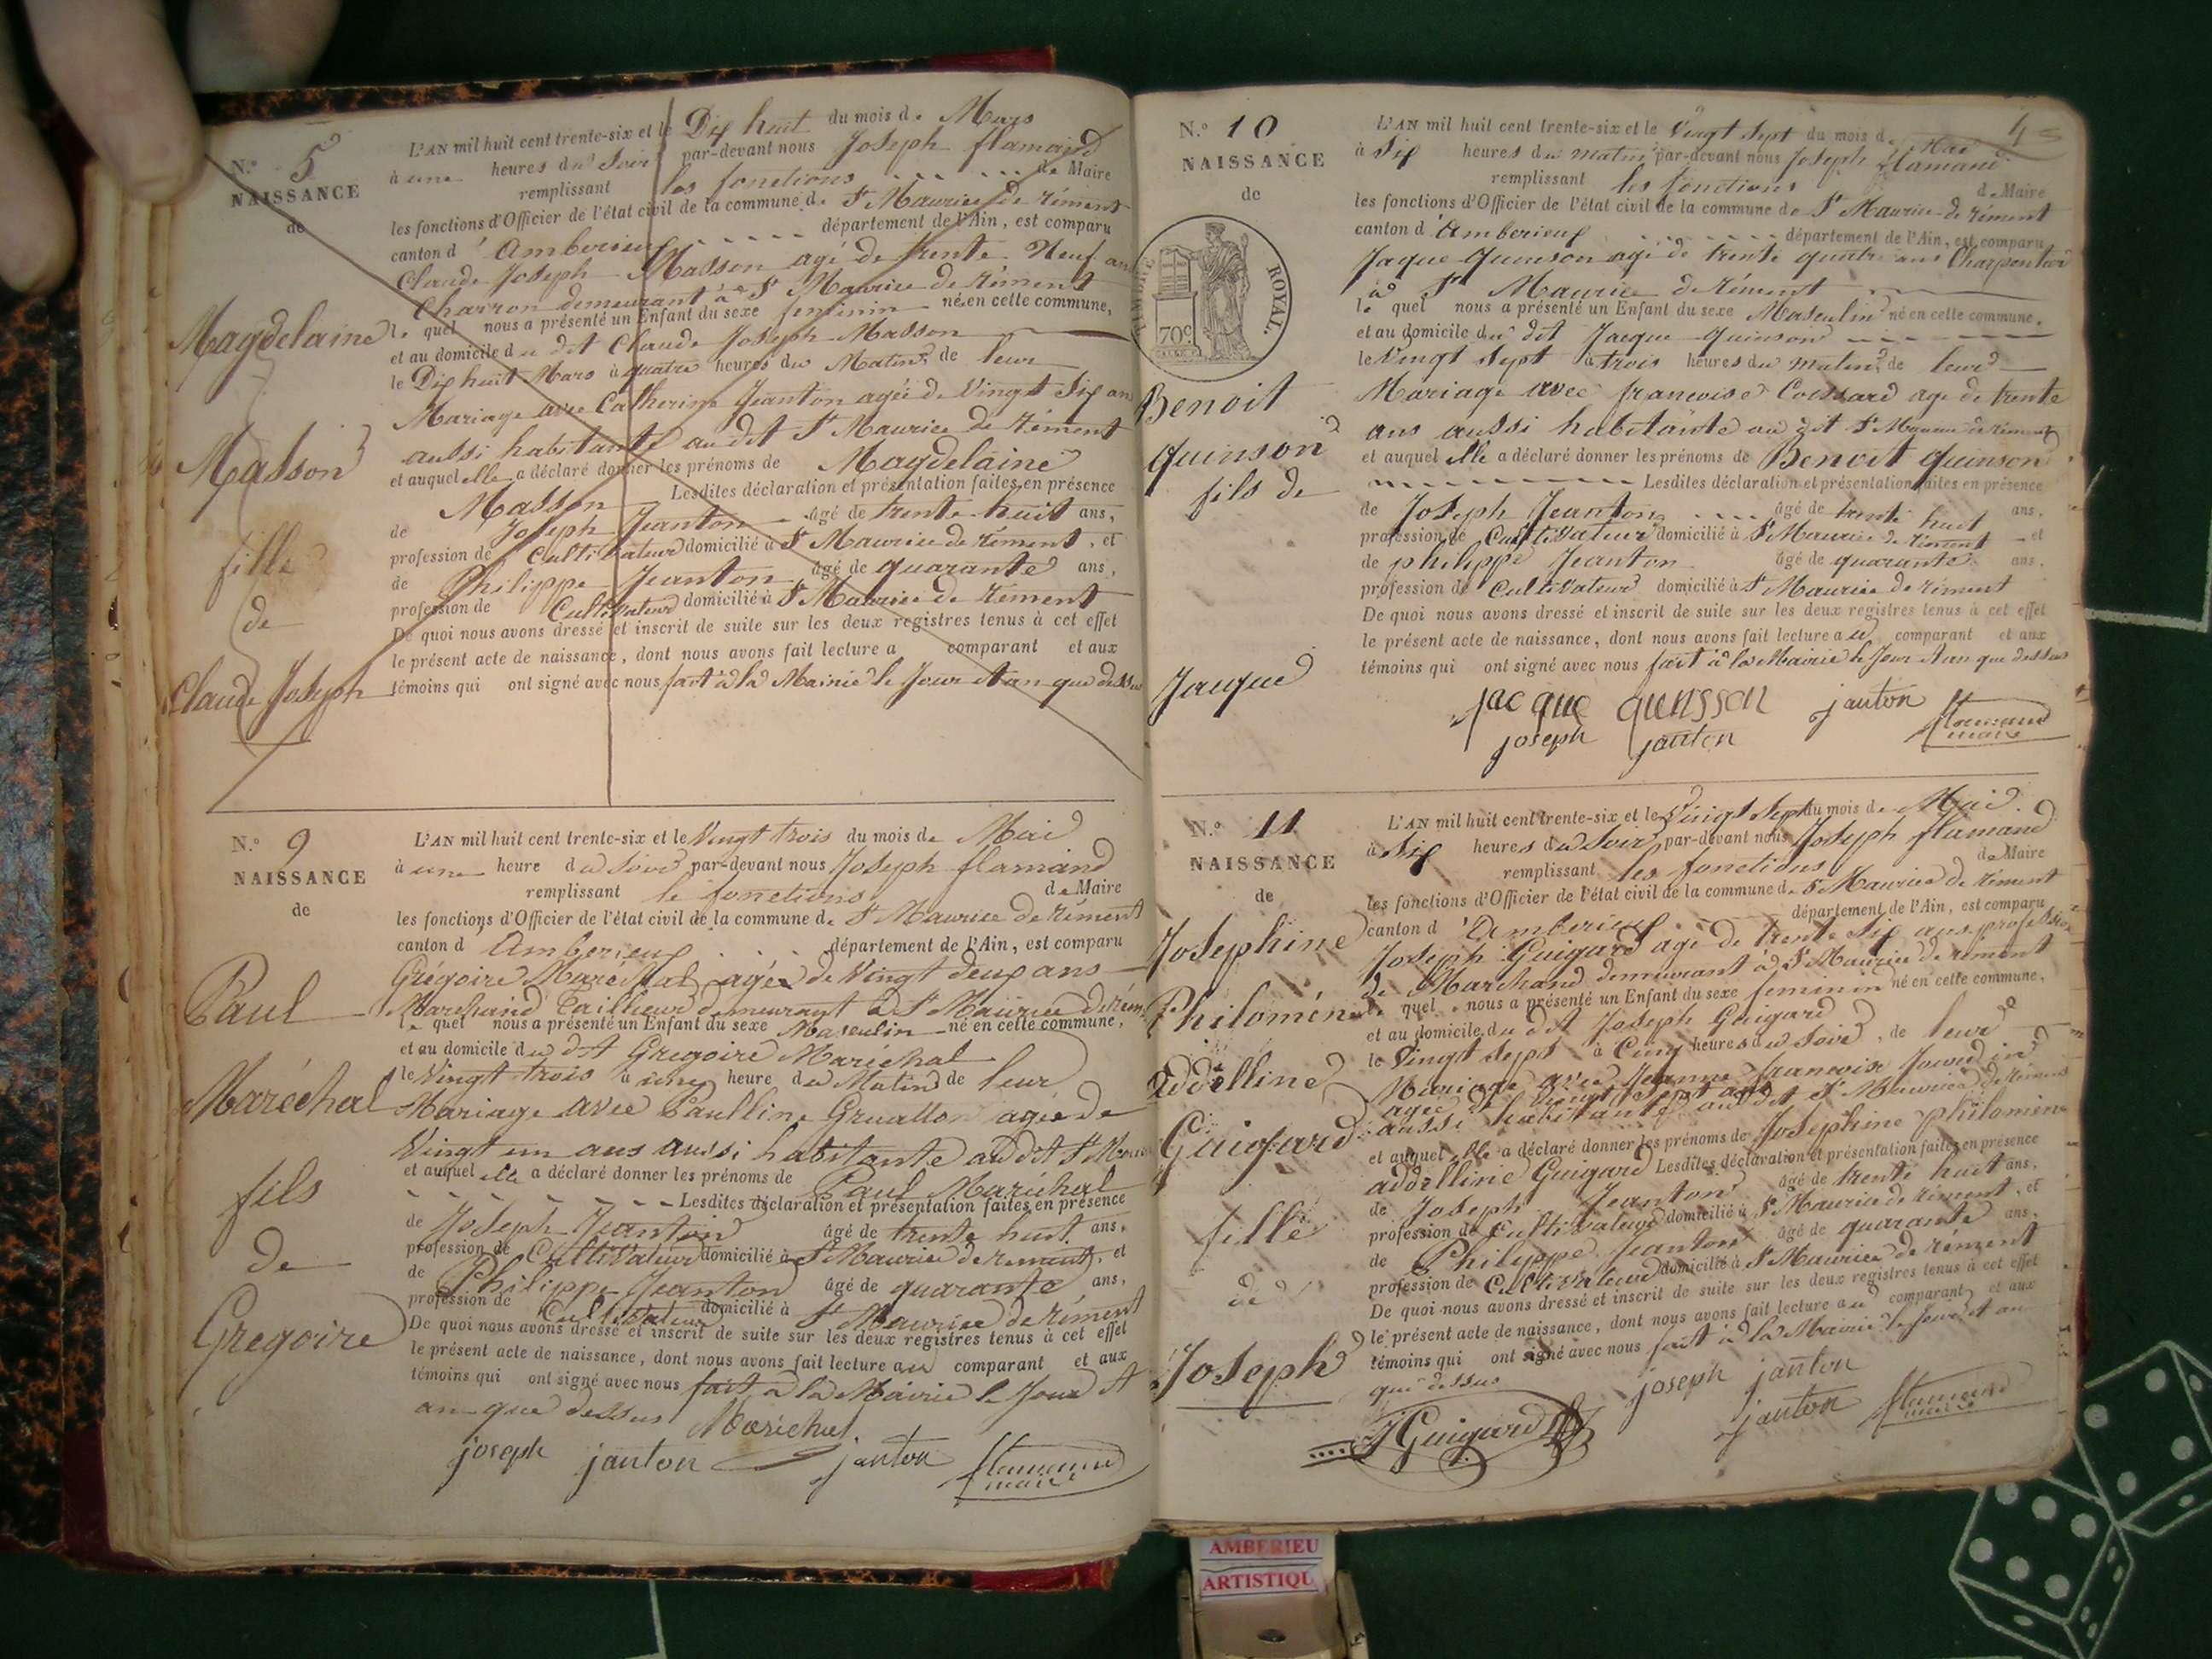 N.° 5
NAISSANCE
de
Magdelaine
Masson
fille
de
Claude Joseph
L'AN mil huit cent trente-six et le Dix huit du mois de Mars
à une heures du Soir par-devant nous Joseph flamand
remplissant les fonctions de Maire
les fonctions d'Officier de l'état civil de la commune de St Maurice de rément
canton d'Amberieux département de l'Ain, est comparu
Claude Joseph Masson agé de trente Neuf ans
Charron demeurant à St Maurice de rément
le quel nous a présenté un Enfant du sexe feminin né en cette commune,
et au domicile du dit Claude Joseph Masson
le Dix huit Mars à quatre heures du Matin de leur
Mariage avec Catherine Jeanton agée de Vingt Six ans
aussi habitante au dit St Maurice de rément
et auquel elle a déclaré donner les prénoms de Magdelaine
Masson Lesdites déclaration et présentation faites en présence
de Joseph Jeanton âgé de trente huit ans,
profession de Cultivateur domicilié à St Maurice de rément, et
de Philippe Jeanton âgé de quarante ans,
profession de Cultivateur domicilié à St Maurice de rément
De quoi nous avons dressé et inscrit de suite sur les deux registres tenus à cet effet
le présent acte de naissance, dont nous avons fait lecture a comparant et aux
témoins qui ont signé avec nous fait à la Mairie le Jour et an que dessus
N.° 9
NAISSANCE
de
Paul
Maréchal
fils
de
Gregoire
L'AN mil huit cent trente-six et le Vingt trois du mois de Mai
à une heure du Soir par-devant nous Joseph flamand
remplissant le fonctions de Maire
les fonctions d'Officier de l'état civil de la commune de St Maurice de rément
canton d Amberieux département de l'Ain, est comparu
Grégoire Maréchal agée de Vingt deux ans
Marchand Tailleur demeurant à St Maurice de rément
le quel nous a présenté un Enfant du sexe Masculin né en cette commune,
et au domicile du dit Gregoire Maréchal
le Vingt trois à une heure du Matin de leur
Mariage avec Paulline Gruallon agée de
Vingt un ans aussi habitante au dit St
et auquel elle a déclaré donner les prénoms de Paul Maréchal
Lesdites déclaration et présentation faites en présence
de Joseph Jeanton âgé de trente huit ans,
profession de Cultivateur domicilié à St Maurice de rément, et
de Philippe Jeanton âgé de quarante ans,
profession de Cultivateur domicilié à St Maurice de rément
De quoi nous avons dressé et inscrit de suite sur les deux registres tenus à cet effet
le présent acte de naissance, dont nous avons fait lecture au comparant et aux
témoins qui ont signé avec nous fait à la Mairie le Jour et
an que dessus Maréchal
joseph janton janton flamand
maire
4
N.° 10
NAISSANCE
de
TIMBRE ROYAL.
70c
Benoit
quinson
fils de
Jaque
L'AN mil huit cent trente-six et le Vingt Sept du mois de Mai
à Six heures du matin par-devant nous Joseph flamand
remplissant les fonctions de Maire
les fonctions d'Officier de l'état civil de la commune de St Maurice de rément
canton d'Amberieux département de l'Ain, est comparu
Jaque quinson agé de trente quatre ans Charpentier
à St Maurice de rément
le quel nous a présenté un Enfant du sexe Masculin né en cette commune,
et au domicile du dit Jacque quinson
le Vingt Sept à trois heures du matin de leur
Mariage avec françoise Coissard age de trente
ans aussi habitante au dit St Maurice de rément
et auquel elle a déclaré donner les prénoms de Benoit quinson
Lesdites déclaration et présentation faites en présence
de Joseph Jeanton âgé de trente huit ans,
profession de Cultivateur domicilié à St Maurice de rément et
de philippe Jeanton âgé de quarante ans,
profession de Cultivateur domicilié à St Maurice de rément
De quoi nous avons dressé et inscrit de suite sur les deux registres tenus à cet effet
le présent acte de naissance, dont nous avons fait lecture au comparant et aux
témoins qui ont signé avec nous fait à la Mairie le Jour et an que dessus
jacque quinsson janton flamand
joseph janton maire
N.° 11
NAISSANCE
de
Josephine
Philomène
addelline
Guigard
fille
de
Joseph
L'AN mil huit cent trente-six et le Vingt Sept du mois de Mai
à Six heures du Soir par-devant nous Joseph flamand
remplissant les fonctions de Maire
les fonctions d'Officier de l'état civil de la commune de St Maurice de rément
canton d'Amberieux département de l'Ain, est comparu
Joseph Guigard agé de trente Six ans profession
de Marchand demeurant à St Maurice de rément
le quel nous a présenté un Enfant du sexe feminin né en cette commune,
et au domicile du dit Joseph Guigard
le Vingt Sept à Cinq heures du Soir, de leur
Mariage avec Jeanne françoise
agée de Vingt Sept ans
aussi habitante au dit St Maurice de rément
et auquel elle a déclaré donner les prénoms de Josephine philomène
addelline Guigard Lesdites déclaration et présentation faites en présence
de Joseph Jeanton âgé de trente huit ans,
profession de Cultivateur domicilié à St Maurice de rément, et
de Philippe Jeanton âgé de quarante ans,
profession de Cultivateur domicilié à St Maurice de rément
De quoi nous avons dressé et inscrit de suite sur les deux registres tenus à cet effet
le présent acte de naissance, dont nous avons fait lecture au comparant et aux
témoins qui ont signé avec nous fait à la Mairie le Jour et an
que dessus joseph janton
J Guigard janton flamand
maire
AMBERIEU
ARTISTIQU